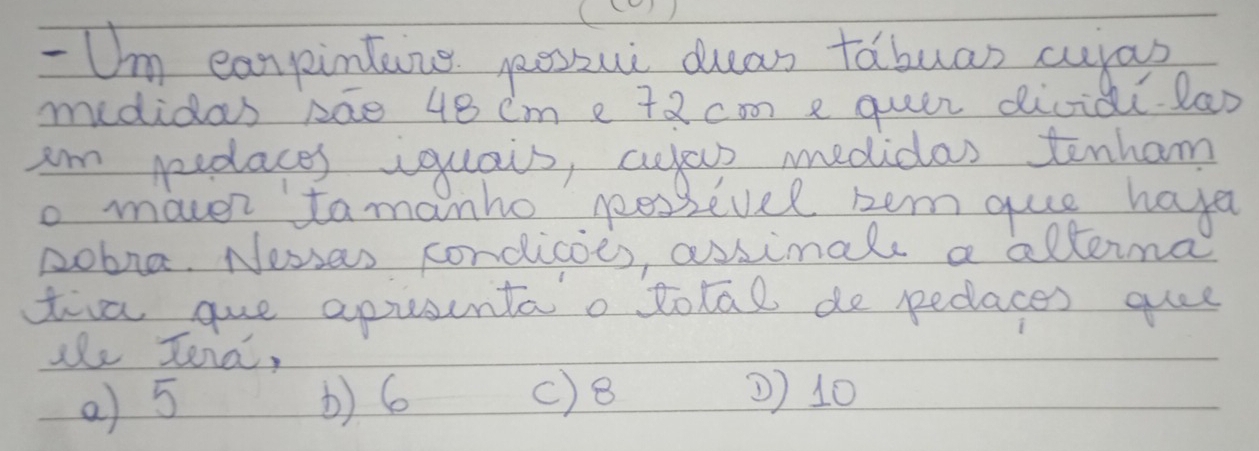 - Um carpinteiro possui duas tábuas cujas
medidas são 48 cm e 72 cm e quer dividí-las
em pedaços iguais, cujas medidas tenham
o maior tamanho possível sem que haja
sobra. Nessas condições, assinale a alterna
tiva que apresenta o total de pedaços que
ele terá,
a) 5 b) 6 c) 8 D) 10